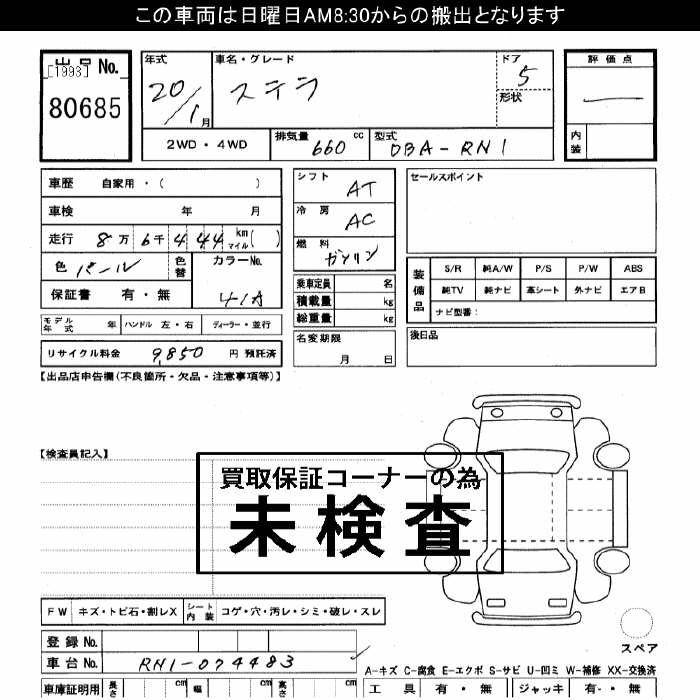 この車両は日曜日AM8:30からの搬出となります
出品 No.
[1993]
80685
年式
20/1月
車名・グレード
ステラ
ドア
5
形状
評価点
内装
2WD・4WD
排気量 660 cc
型式 DBA-RN1
車歴 自家用・( )
車検 年 月
走行 8万 6千 4 44 km マイル( )
色 パール 色替
カラーNo.
41A
保証書 有・無
シフト AT
冷房 AC
燃料 ガソリン
乗車定員 名
積載量 kg
総重量 kg
セールスポイント
装備品
S/R 純A/W P/S P/W ABS
純TV 純ナビ 革シート 外ナビ エアB
ナビ型番:
モデル年式 年 ハンドル 左・右 ディーラー・並行
リサイクル料金 9,850 円 預託済
名変期限
月 日
後日品
【出品店申告欄(不良箇所・欠品・注意事項等)】
【検査員記入】
買取保証コーナーの為
未検査
FW キズ・トビ石・割レX シート内装 コゲ・穴・汚レ・シミ・破レ・スレ
登録No.
車台No. RN1-074483
スペア
A-キズ C-腐食 E-エクボ S-サビ U-凹ミ W-補修 XX-交換済
車庫証明用 長さ cm 幅 cm 高さ cm
工具 有・無 ジャッキ 有・無